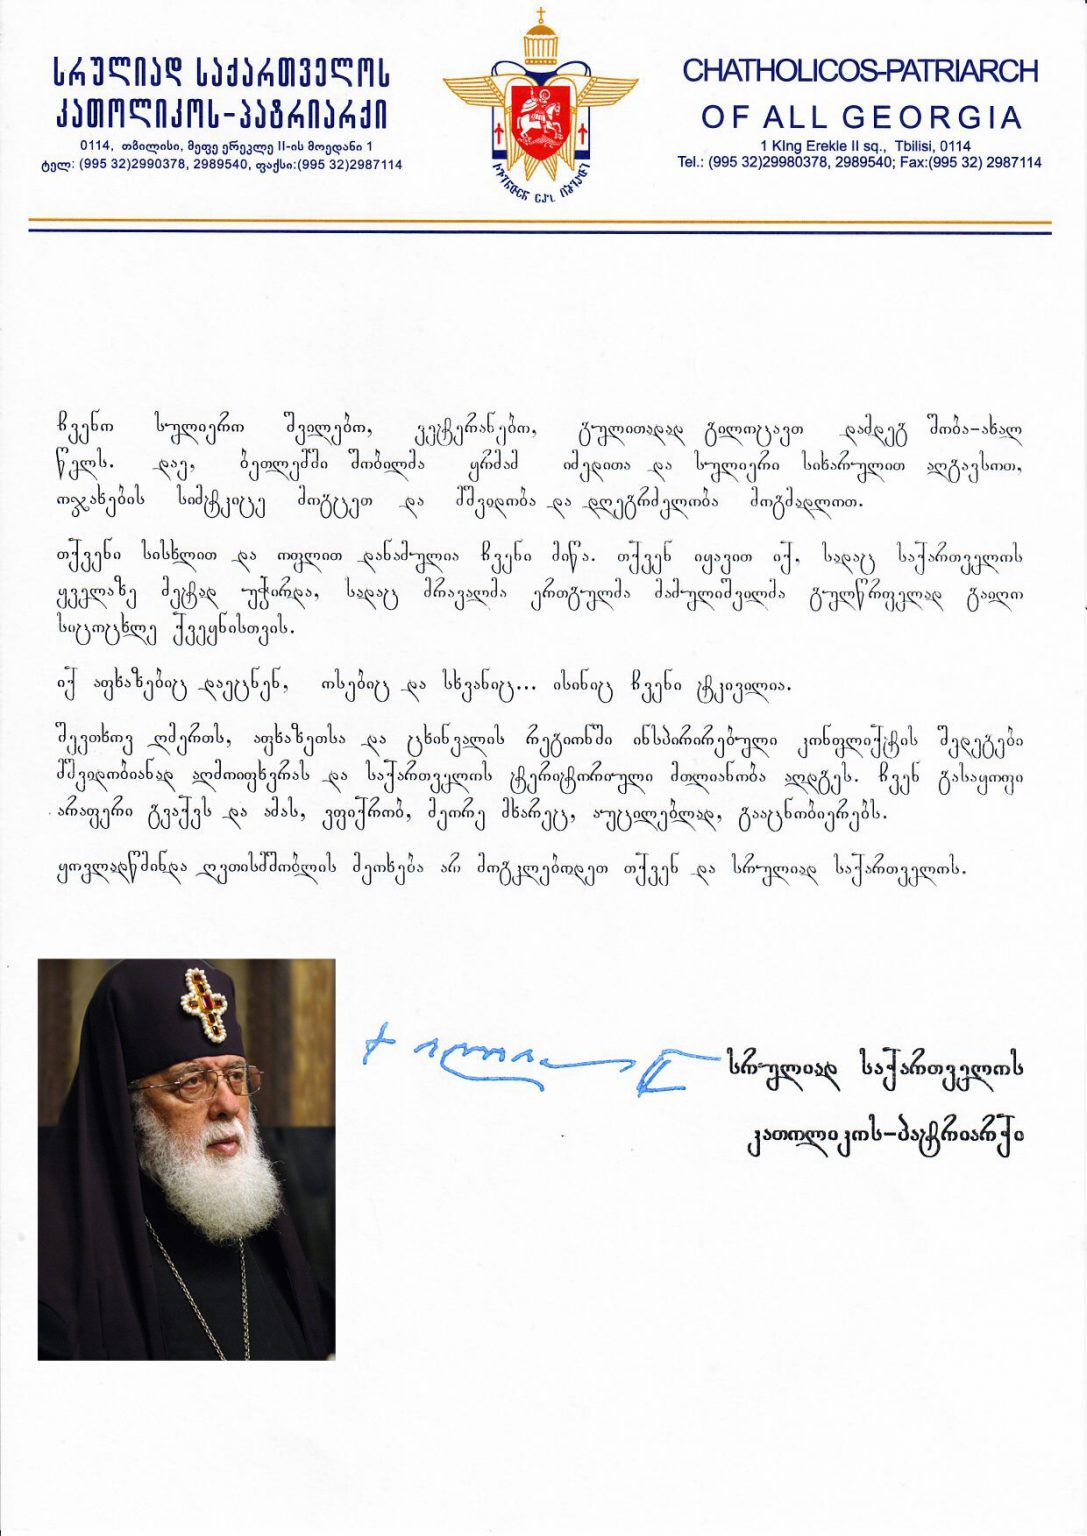 სრულიად საქართველოს
კათოლიკოს-პატრიარქი
0114, თბილისი, მეფე ერეკლე II-ის მოედანი 1
ტელ: (995 32)2990378, 2989540, ფაქსი:(995 32)2987114
CHATHOLICOS-PATRIARCH
OF ALL GEORGIA
1 KIng Erekle II sq., Tbilisi, 0114
Tel.: (995 32)29980378, 2989540; Fax:(995 32) 2987114
ჩვენო სულიერო შვილებო, ვეტერანებო, გულითადად გილოცავთ დამდეგ შობა-ახალ
წელს. დაე, ბეთლემში შობილმა ყრმამ იმედითა და სულიერი სიხარულით აღგავსოთ,
ოჯახების სიმტკიცე მოგცეთ და მშვიდობა და დღეგრძელობა მოგმადლოთ.
თქვენი სისხლით და ოფლით დანამულია ჩვენი მიწა. თქვენ იყავით იქ, სადაც საქართველოს
ყველაზე მეტად უჭირდა, სადაც მრავალმა ერთგულმა მამულიშვილმა გულწრფელად გაიღო
სიცოცხლე ქვეყნისთვის.
იქ აფხაზებიც დაეცნენ, ოსებიც და სხვანიც... ისინიც ჩვენი ტკივილია.
შევთხოვ ღმერთს, აფხაზეთსა და ცხინვალის რეგიონში ინსპირირებული კონფლიქტის შედეგები
მშვიდობიანად აღმოიფხვრას და საქართველოს ტერიტორიული მთლიანობა აღდგეს. ჩვენ გასაყოფი
არაფერი გვაქვს და ამას, ვფიქრობ, მეორე მხარეც, აუცილებლად, გააცნობიერებს.
ყოვლადწმინდა ღვთისმშობლის მეოხება არ მოგკლებოდეთ თქვენ და სრულიად საქართველოს.
სრულიად საქართველოს
კათოლიკოს-პატრიარქი